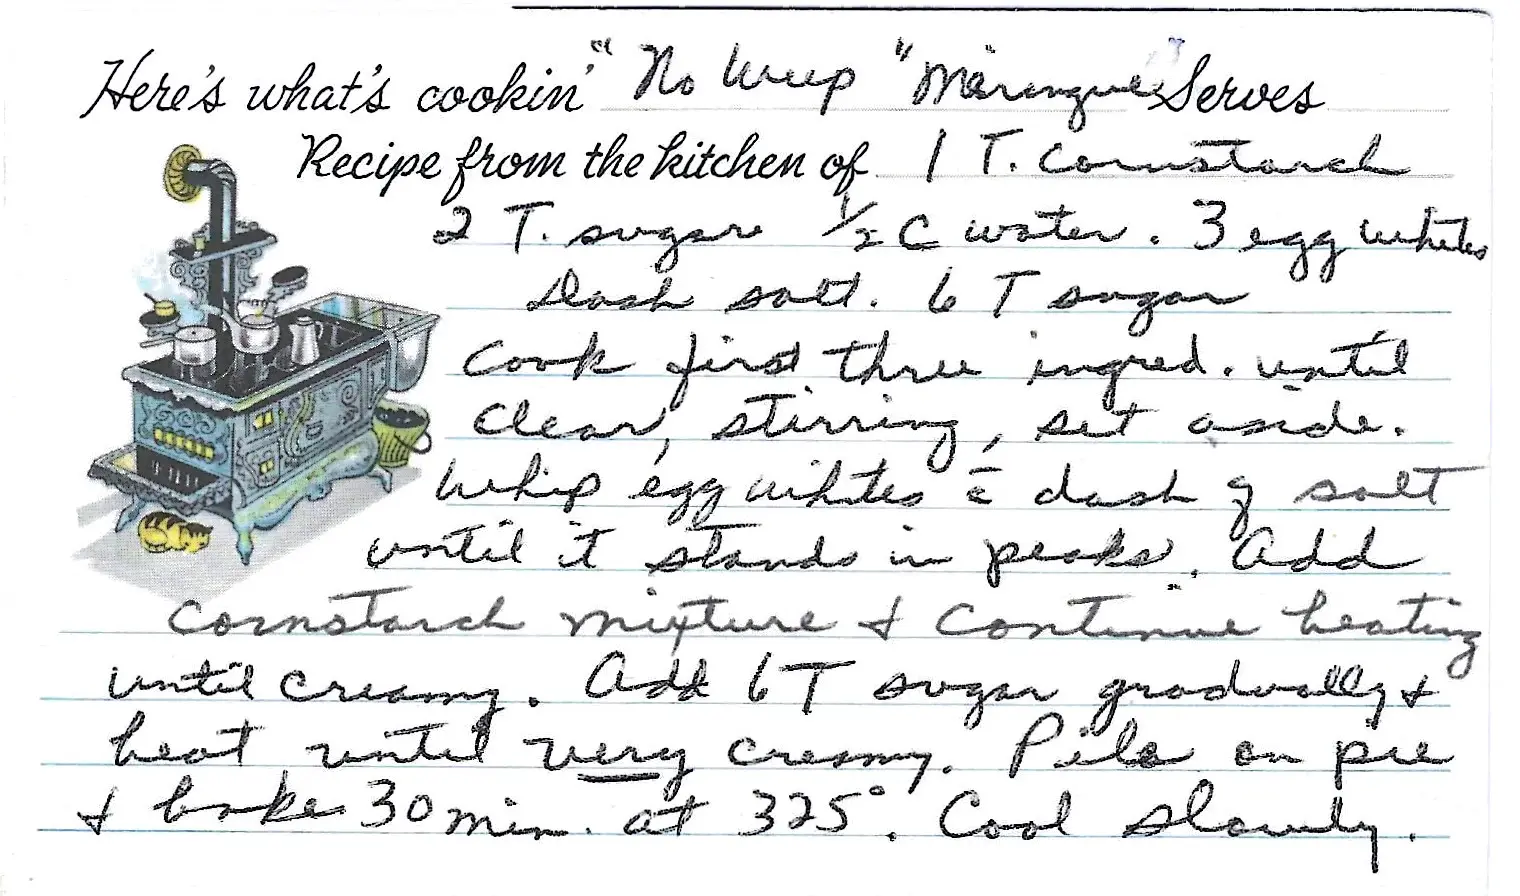 Here's what's cookin' "No Weep" Meringue" Serves
Recipe from the kitchen of 1 T. Cornstarch
2 T. sugar ½ C water. 3 egg whites
Dash salt. 6 T sugar
Cook first three ingred. until
clear, stirring, set aside.
Whip egg whites c̄ dash of salt
until it stands in peaks. Add
cornstarch mixture & continue beating
until creamy. Add 6 T sugar gradually &
beat until very creamy. Pile on pie
& bake 30 min. at 325°. Cool slowly.